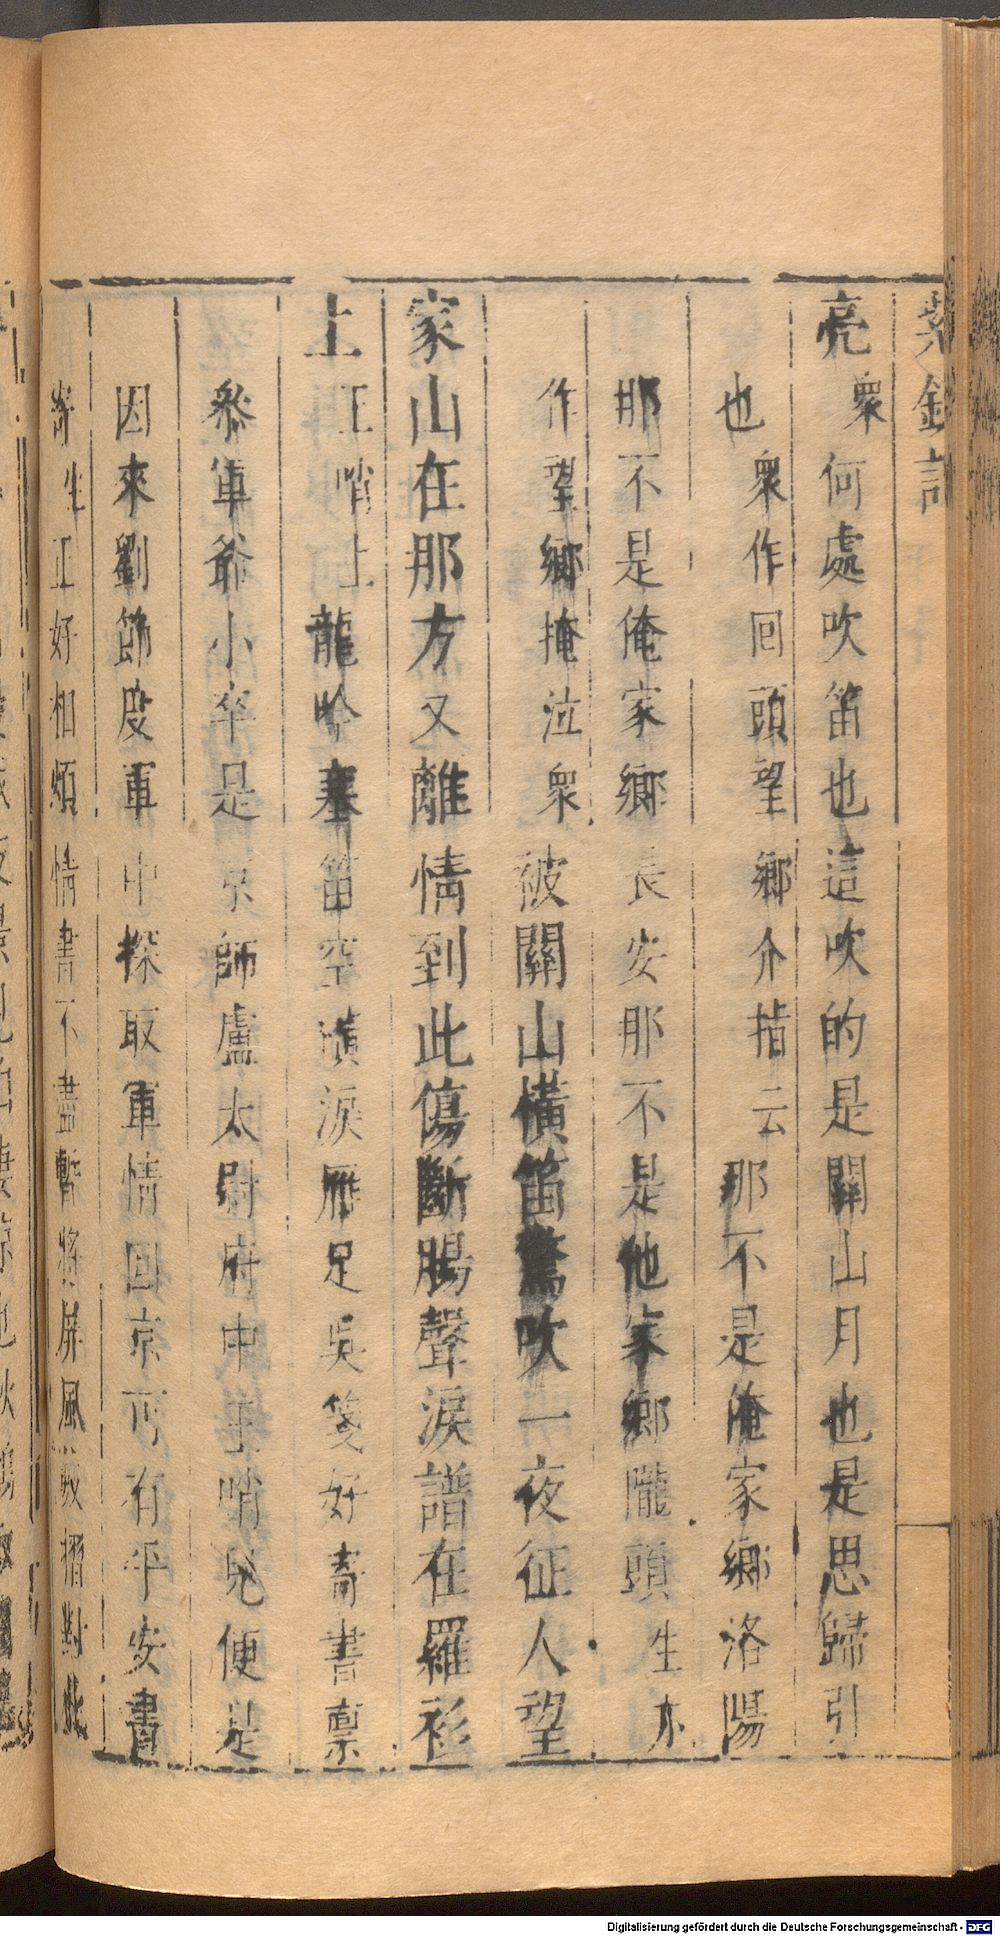 紫釵記
亮衆何處吹笛也這吹的是關山月也是思歸引
也衆作回頭望鄉介指云那不是俺家鄉洛陽
那不是俺家鄉長安那不是他家鄉隴頭生亦
作望鄉掩泣衆被關山橫笛驚吹一夜征人望
家山在那方又離情到此傷斷腸聲淚譜在羅衫
上王哨上龍吟塞笛空濆淚雁足吳箋好寄書禀
叅軍爺小卒是京師盧太尉府中王哨兒便是
因來劉節度軍中探取軍情回京可有平安書
寄生正好相煩情書不盡暫將屏風數摺對此
Digitalisierung gefördert durch die Deutsche Forschungsgemeinschaft - DFG